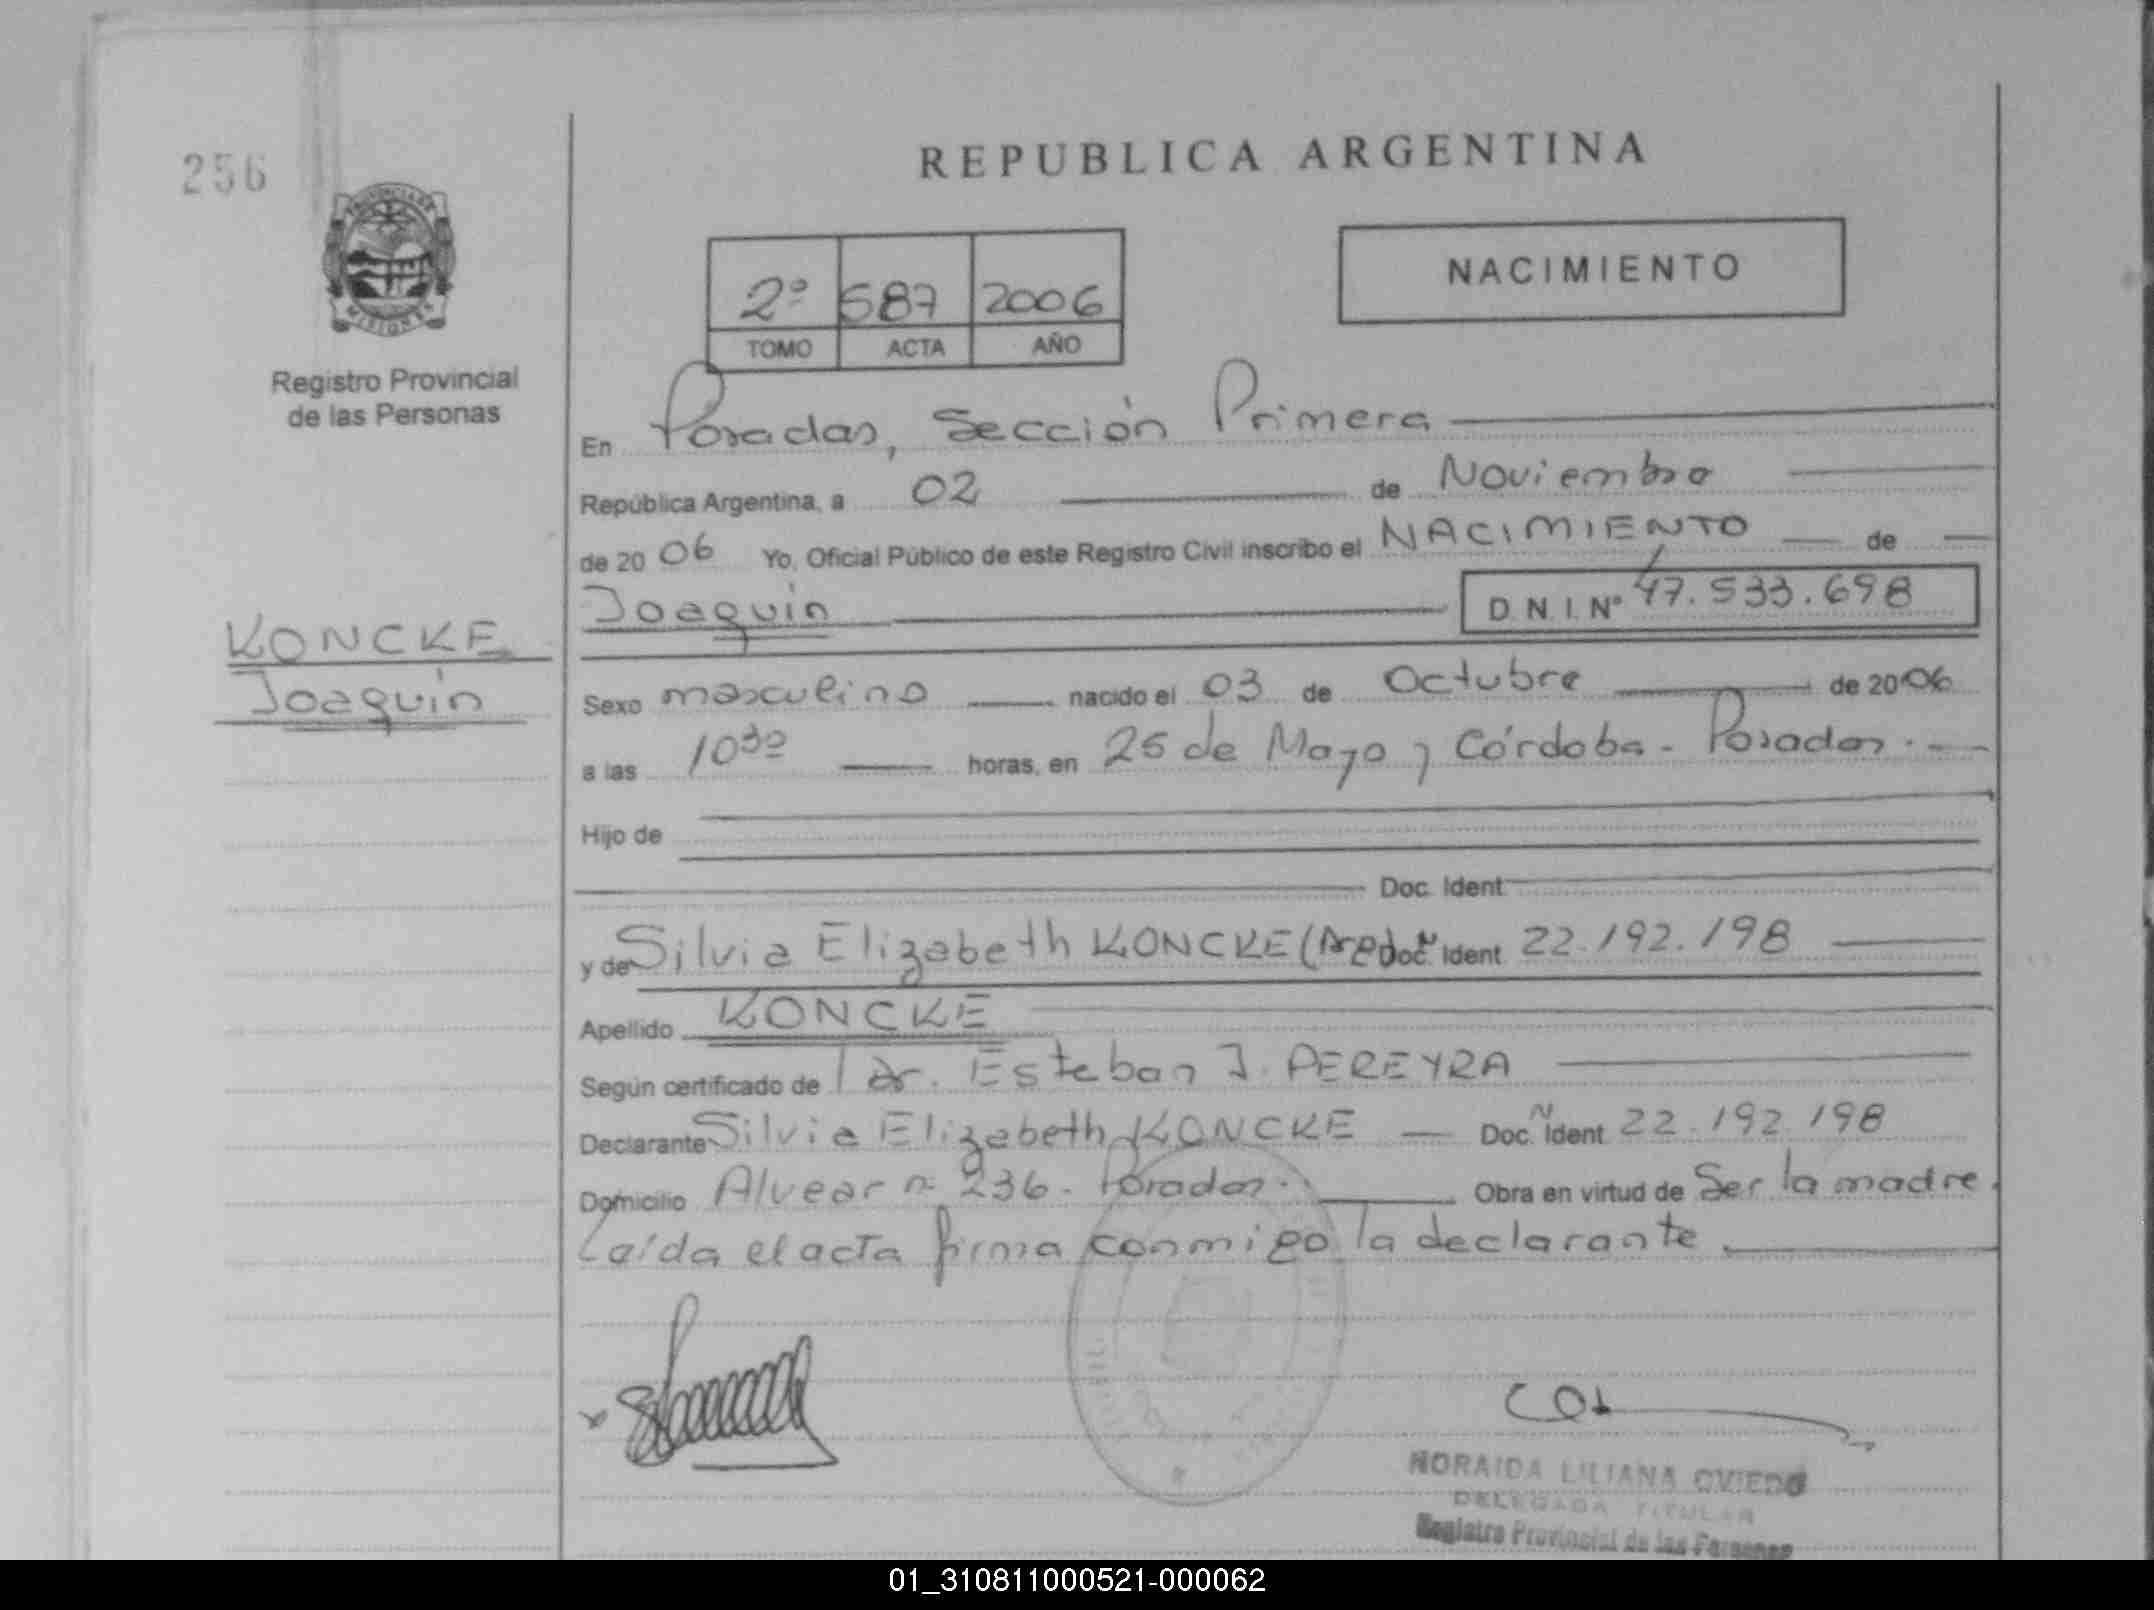 256
REPUBLICA ARGENTINA
PROVINCIA DE
MISIONES
Registro Provincial
de las Personas
2º 587 2006
TOMO ACTA AÑO
NACIMIENTO
En Posadas, Sección Primera
República Argentina, a 02 de Noviembre
de 20 06 Yo, Oficial Público de este Registro Civil inscribo el NACIMIENTO de
Joaquín D. N. I. Nº 47.533.698
KONCKE
Joaquín
Sexo masculino nacido el 03 de Octubre de 2006
a las 10³⁰ horas, en 25 de Mayo y Córdoba - Posadas.
Hijo de
Doc. Ident
y de Silvia Elizabeth KONCKE (Arg Doc. N Ident 22.192.198
Apellido KONCKE
Según certificado de dr. Esteban J. PEREYRA
Declarante Silvia Elizabeth KONCKE Doc. N Ident 22.192.198
Domicilio Alvear n 236 - Posadas. Obra en virtud de Ser la madre.
Laída el acta firma conmigo la declarante.
NORAIDA LILIANA OVIEDO
DELEGADA TITULAR
Registro Provincial de las Personas
01_310811000521-000062